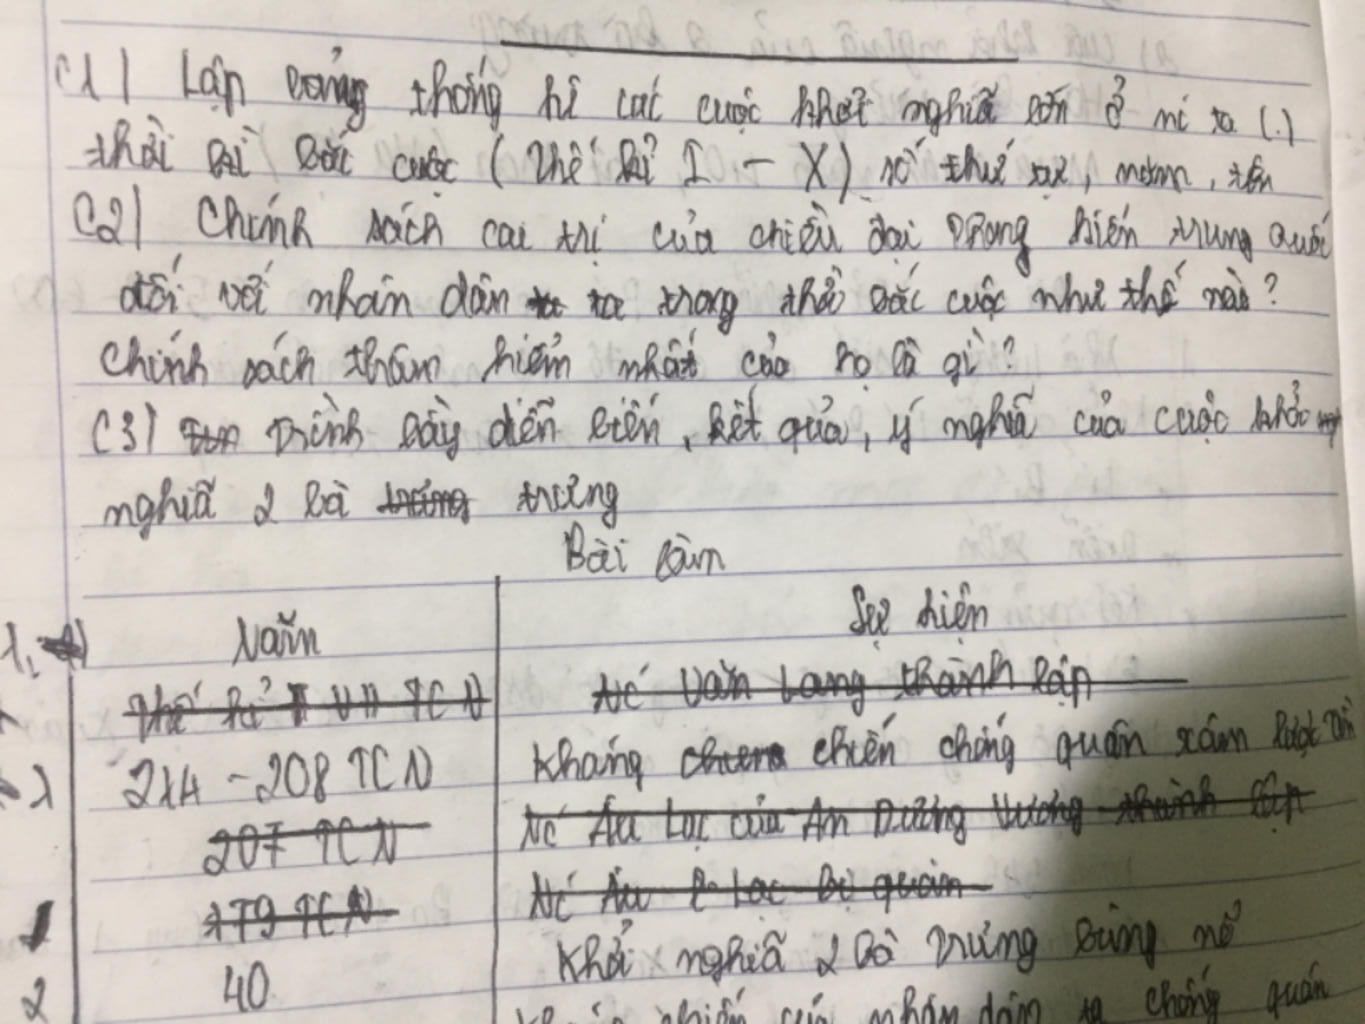 C1) Lập bảng thống kê các cuộc khởi nghĩa lớn ở nc ta (.)
thời kì Bắc cuộc (thế kỉ I - X) số thứ tự, năm, tên
C2) Chính sách cai trị của chiều đại phong kiến trung quốc
đối với nhân dân ta trong thời Bắc cuộc như thế nào?
Chính sách thâm hiểm nhất của họ là gì?
C3) Trình bày diễn biến, kết quả, ý nghĩa của cuộc khởi
nghĩa 2 bà trưng
Bài làm
1. Năm Sự kiện
Thế kỉ VII TCN Nc Văn Lang thành lập
214 - 208 TCN Kháng chiến chống quân xâm lược
207 TCN Nc Âu Lạc của An Dương Vương thành lập
179 TCN Nc Âu Lạc bị quân
1 40 Khởi nghĩa 2 Bà Trưng bùng nổ
2 nhân dân ta chống quân